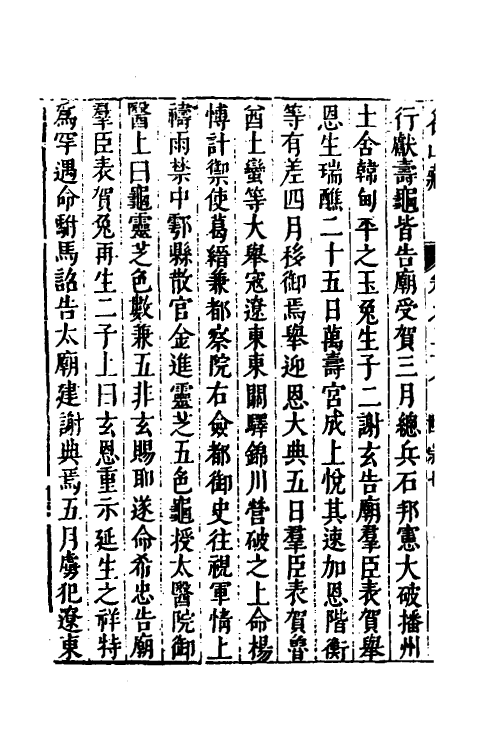 行獻壽龜皆告廟受賀三月總兵石邦憲大破播州
土舍韓甸平之玉兔生子二謝玄告廟羣臣表賀舉
恩生瑞醮二十五日萬壽宮成上悅其速加恩階衡
等有差四月移御焉舉迎恩大典五日羣臣表賀魯
酋土蠻等大舉寇遼東東關驛錦川營破之上命楊
博計禦使葛縉兼都察院右僉都御史往視軍情上
禱雨禁中鄠縣散官金進靈芝五色龜授太醫院御
醫上曰龜靈芝色數兼五非玄賜耶遂命希忠告廟
羣臣表賀兔再生二子上曰玄恩重示延生之祥特
爲罕遇命駙馬詔告太廟建謝典焉五月虜犯遼東